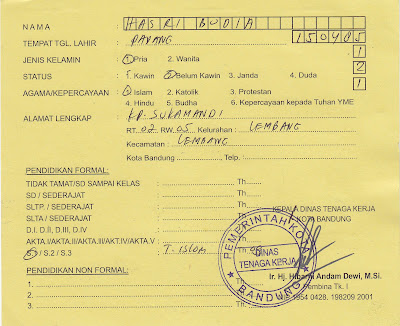 NAMA HASRI BUDIA
TEMPAT TGL. LAHIR : PADANG 150485
JENIS KELAMIN : 1. Pria 2. Wanita 1
STATUS : 1. Kawin 2. Belum Kawin 3. Janda 4. Duda 2
AGAMA/KEPERCAYAAN : 1. Islam 2. Katolik 3. Protestan 1
4. Hindu 5. Budha 6. Kepercayaan kepada Tuhan YME
ALAMAT LENGKAP : KP. SUKAMANDI
RT. 02 RW. 05 Kelurahan : LEMBANG
Kecamatan : LEMBANG
Kota Bandung Telp. :
PENDIDIKAN FORMAL:
TIDAK TAMAT/SD SAMPAI KELAS : Th.
SD / SEDERAJAT : Th.
SLTP. / SEDERAJAT : Th. KEPALA DINAS TENAGA KERJA
SLTA / SEDERAJAT : Th. KOTA BANDUNG
D.I. D.II, D.III, D.IV : Th.
AKTA.I/AKTA.II/AKTA.III/AKT.IV/AKTA.V : Th.
S / S.2 / S.3 : T. ISLAM Th.
PENDIDIKAN NON FORMAL :
1. Th.
2. Th.
3. Th.
PEMERINTAH KOTA
DINAS
TENAGA KERJA
BANDUNG
Ir. Hj. Andam Dewi, M.Si.
Pembina Tk. I
1954 0428. 198209 2001